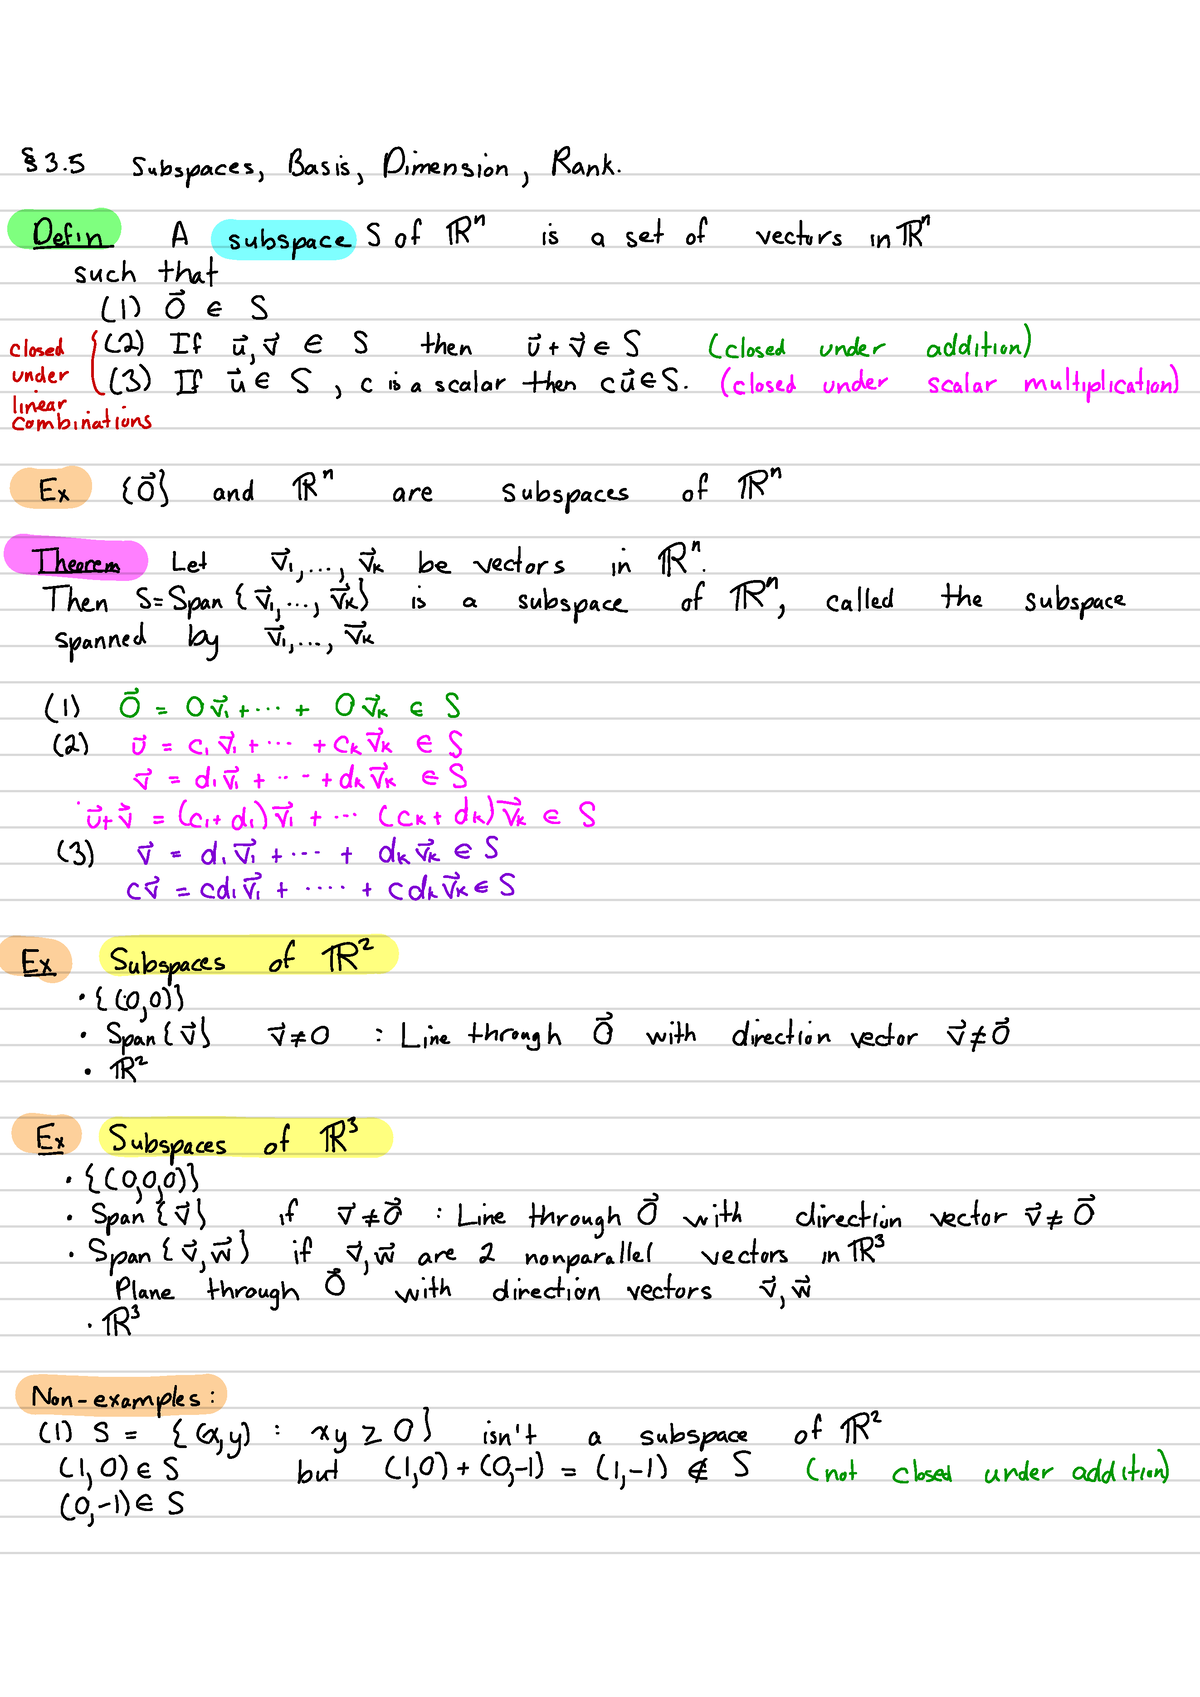 §3.5 Subspaces, Basis, Dimension, Rank.
Defin A subspace S of ℝⁿ is a set of vectors in ℝⁿ
such that
(1) 0⃗ ∈ S
(2) If u⃗, v⃗ ∈ S then u⃗ + v⃗ ∈ S (closed under addition)
(3) If u⃗ ∈ S, c is a scalar then cu⃗ ∈ S. (closed under scalar multiplication)
closed
under
linear
combinations
Ex {0⃗} and ℝⁿ are subspaces of ℝⁿ
Theorem Let v⃗₁, ..., v⃗ₖ be vectors in ℝⁿ.
Then S = Span {v⃗₁, ..., v⃗ₖ} is a subspace of ℝⁿ, called the subspace
spanned by v⃗₁, ..., v⃗ₖ
(1) 0⃗ = 0v⃗₁ + ··· + 0v⃗ₖ ∈ S
(2) u⃗ = c₁v⃗₁ + ··· + cₖv⃗ₖ ∈ S
v⃗ = d₁v⃗₁ + ··· + dₖv⃗ₖ ∈ S
u⃗ + v⃗ = (c₁ + d₁)v⃗₁ + ··· (cₖ + dₖ)v⃗ₖ ∈ S
(3) v⃗ = d₁v⃗₁ + ··· + dₖv⃗ₖ ∈ S
cv⃗ = cd₁v⃗₁ + ···· + cdₖv⃗ₖ ∈ S
Ex Subspaces of ℝ²
• {(0,0)}
• Span {v⃗} v⃗ ≠ 0 : Line through 0⃗ with direction vector v⃗ ≠ 0⃗
• ℝ²
Ex Subspaces of ℝ³
• {(0,0,0)}
• Span {v⃗} if v⃗ ≠ 0⃗ : Line through 0⃗ with direction vector v⃗ ≠ 0⃗
• Span {v⃗, w⃗} if v⃗, w⃗ are 2 nonparallel vectors in ℝ³
Plane through 0⃗ with direction vectors v⃗, w⃗
• ℝ³
Non-examples:
(1) S = {(x,y) : xy ≥ 0} isn't a subspace of ℝ²
(1,0) ∈ S but (1,0) + (0,-1) = (1,-1) ∉ S (not closed under addition)
(0,-1) ∈ S